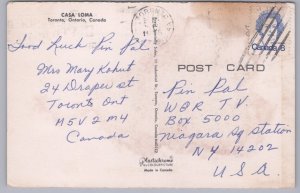 CASA LOMA
Toronto, Ontario, Canada
Good Luck Pin Pal
Mrs Mary Kohut
24 Draper st
Toronto Ont
M5V 2M4
Canada
POST CARD
Canada 8
Pin Pal
WBR T.V.
Box 5000
Niagara Sq Station
N.Y. 14202
U.S.A.
Plastichrome
Made in Canada